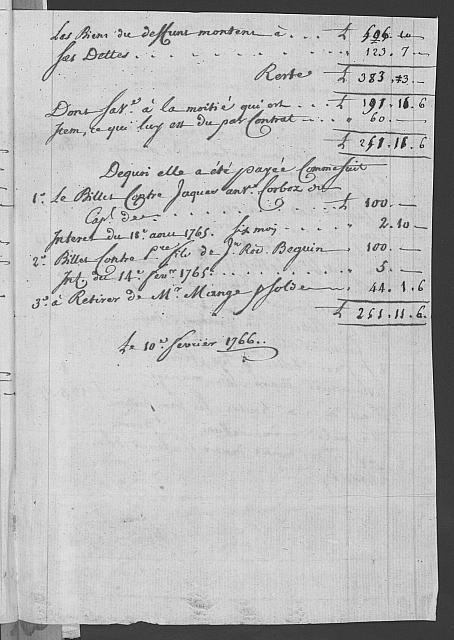 Les Biens du deffunt montent à . . . £ 506. 10 —
Ses Dettes . . . . . . . . . . " 123. 7 —
Reste £ 383. 3 —
Dont sa Ve. à la moitié qui est . . . £ 191. 11. 6
Item, ce qui luy est du par Contrat — " 60. —
£ 251. 11. 6
Dequoi elle a été payée Comme suit
1o. Le Billet Contre Jaques Corboz du
Capl. de — . . . . . . . £ 100. —
Interet du 18e. aout 1765. six moj . . " 2. 10 —
2o. Billet Contre Pre. fils de Jn. Rod. Beguin " 100. —
Int. du 14e. fevr. 1765. . . . . . " 5. —
3o. à Retirer de Mr. Mange p solde " 44. 1. 6
£ 251. 11. 6.
Le 10e. fevrier 1766.